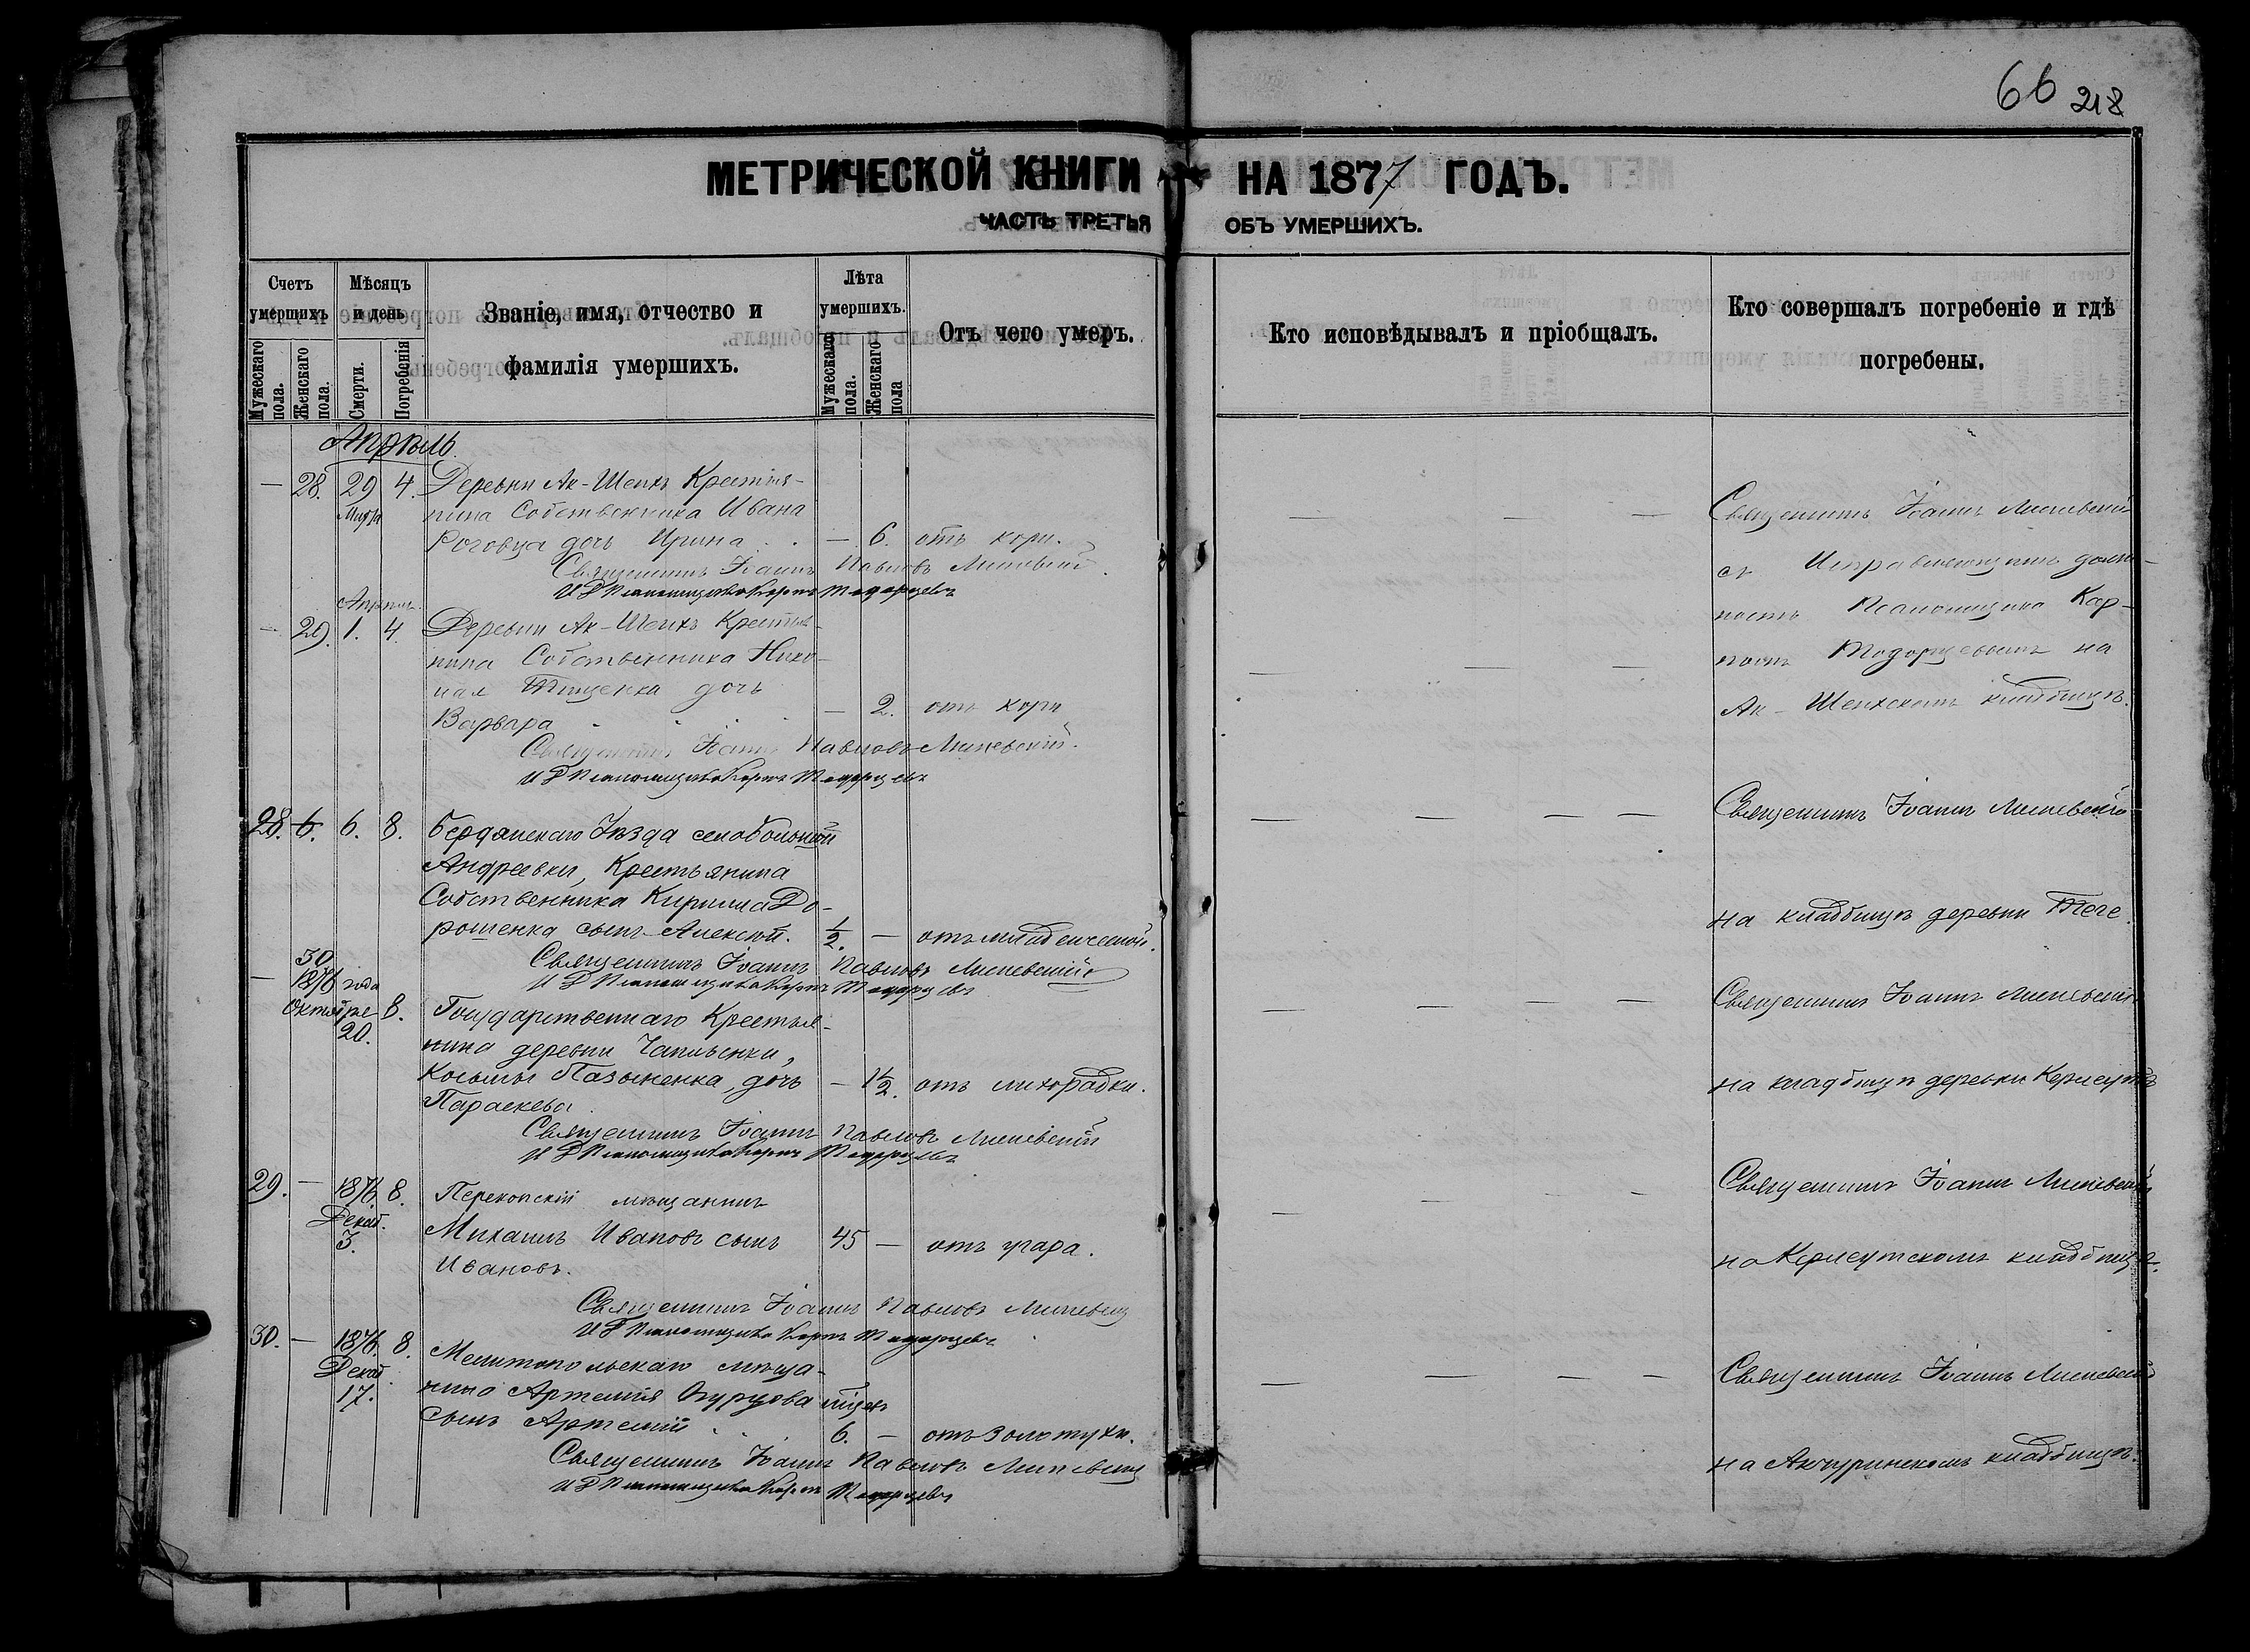 66 218
МЕТРИЧЕСКОЙ КНИГИ НА 1877 ГОДЪ.
ЧАСТЬ ТРЕТЬЯ ОБЪ УМЕРШИХЪ.
Счетъ умершихъ
Мужескаго пола.
Женскаго пола.
Мѣсяцъ и день
Смерти.
Погребенія
Званіе, имя, отчество и фамилія умершихъ.
Лѣта умершихъ.
Мужескаго пола.
Женскаго пола
Отъ чего умеръ.
Кто исповѣдывалъ и пріобщалъ.
Кто совершалъ погребеніе и гдѣ погребены.
Апрѣль.
— 28. 29 4. Деревни Ак-Шеихъ Крестья-
Марта нина Собственника Ивана
Роговца дочь Ирина — 6. отъ кори.
Священникъ Іоаннъ Павловъ
И Д Псаломщика Карпъ
Священникъ Іоаннъ
съ Исправляющимъ долж-
ность Псаломщика Кар-
помъ на
Ак-Шеихскомъ кладбищѣ.
Апрѣль
— 29. 1. 4. Деревни Ак-Шеихъ Крестья-
нина Собственника Нико-
лая Тищенка дочь
Варвара — 2. отъ кори
Священникъ Іоаннъ Павловъ
И Д Псаломщика Карпъ
28. 6. 6. 8. Бердянскаго Уѣзда села Большой
Андреевки, Крестьянина
Собственника Кирилла До-
рошенка сынъ Алексѣй. 1/2. — отъ младенческой.
Священникъ Іоаннъ Павловъ
И Д Псаломщика Карпъ
Священникъ Іоаннъ
на кладбищѣ деревни Теге.
— 30
1876 года
Октября 8. Государственнаго Крестья-
20. нина деревни Чаплынки,
Косьмы дочь — 1 1/2. отъ лихорадки.
Параскева.
Священникъ Іоаннъ Павловъ
И Д Псаломщика Карпъ
Священникъ Іоаннъ
на кладбищѣ деревни Керлеутъ
29. — 1876 8. Перекопскій мѣщанинъ
Декаб. Михаилъ Ивановъ сынъ 45 — отъ удара.
3. Ивановъ.
Священникъ Іоаннъ Павловъ
И Д Псаломщика Карпъ
Священникъ Іоаннъ
на Керлеутскомъ кладбищѣ.
30. — 1876. 8. Мелитопольскаго мѣща-
Декаб. нина Артемія Огурцова
17. сынъ Артемій 6. — отъ золотухи.
Священникъ Іоаннъ Павловъ
И Д Псаломщика Карпъ
Священникъ Іоаннъ
на Акчуринскомъ кладбищѣ.